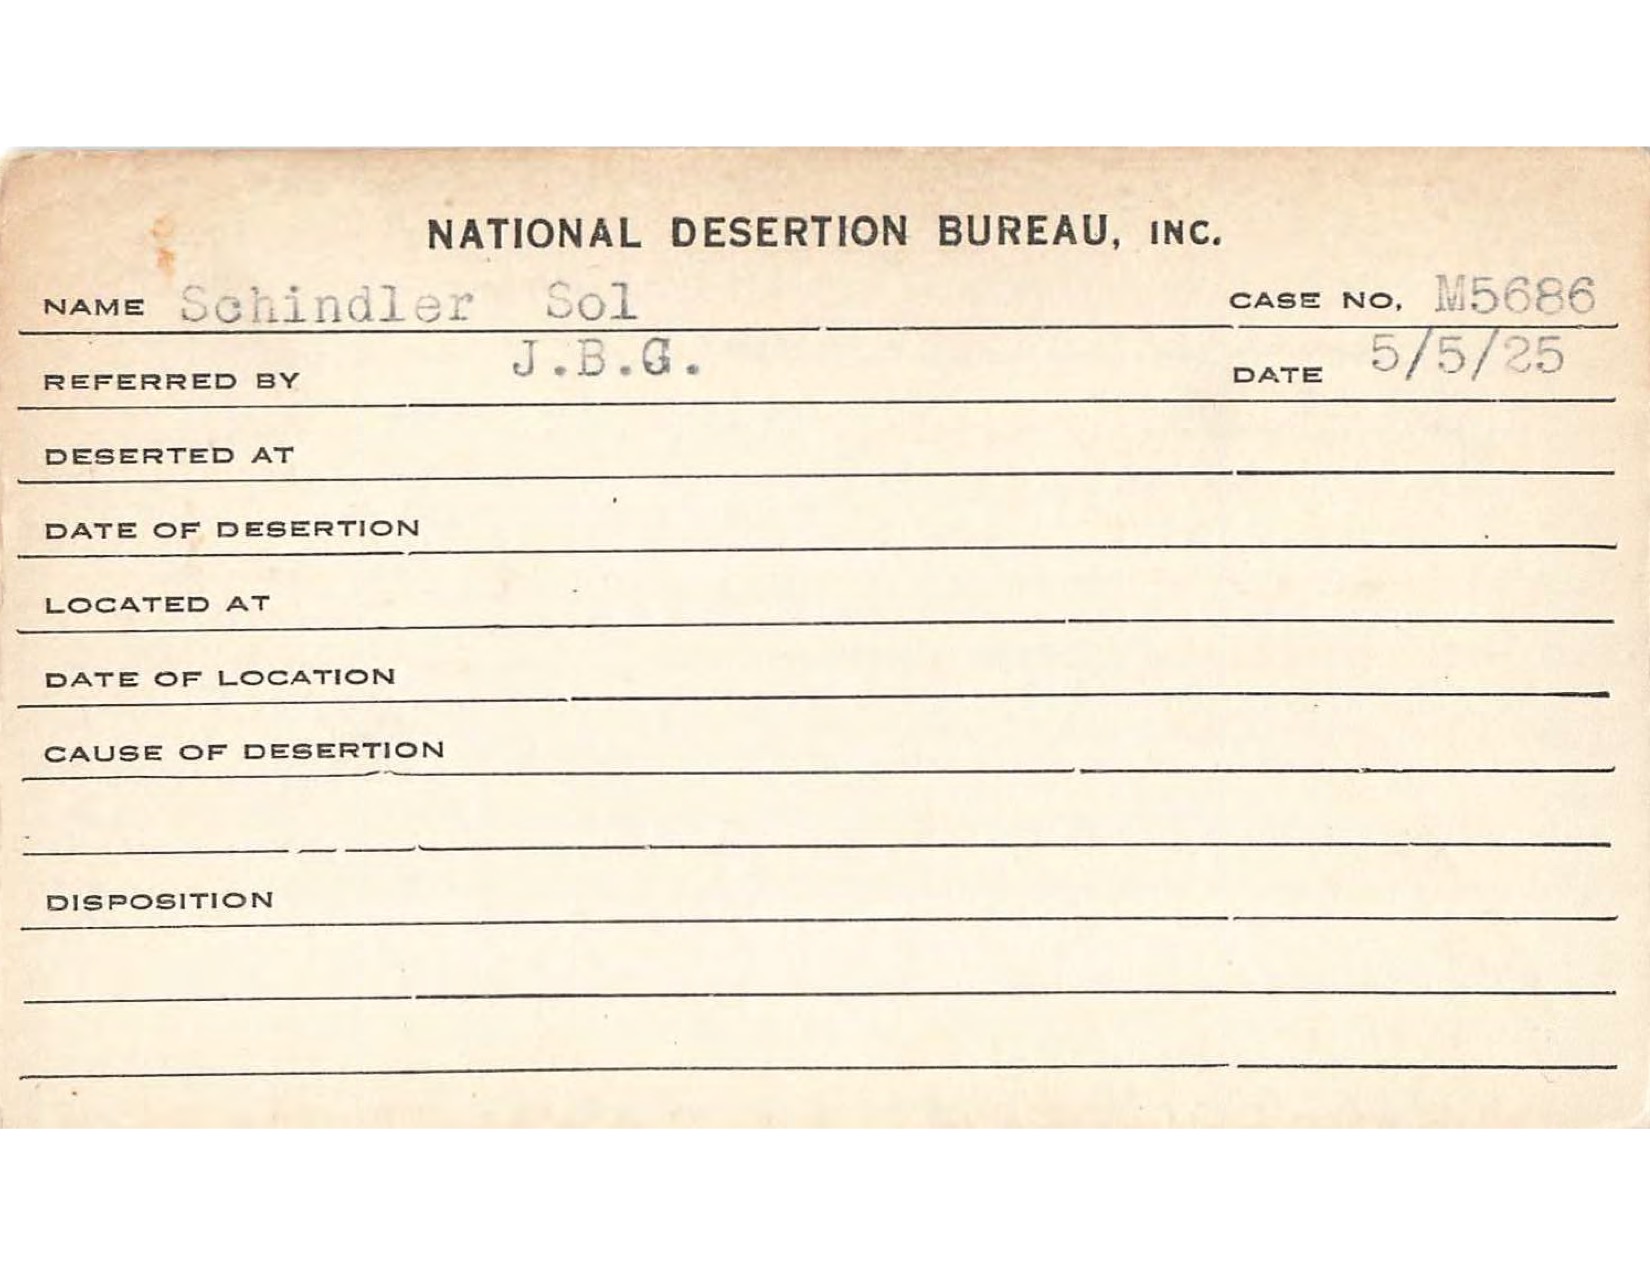 NATIONAL DESERTION BUREAU, INC.
NAME Schindler Sol CASE NO. M5686
REFERRED BY J.B.G. DATE 5/5/25
DESERTED AT
DATE OF DESERTION
LOCATED AT
DATE OF LOCATION
CAUSE OF DESERTION
DISPOSITION